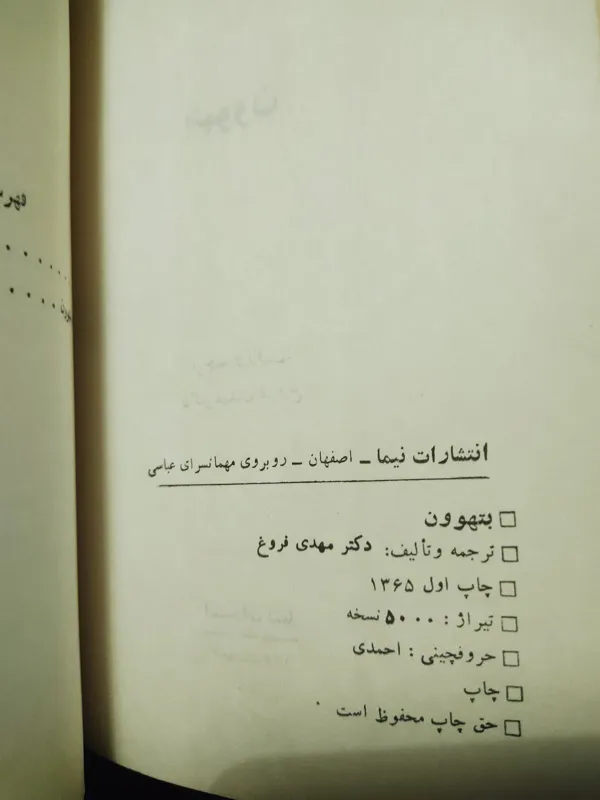 انتشارات نیما ـ اصفهان ـ روبروی مهمانسرای عباسی
□ بتهوون
□ ترجمه وتألیف: دکتر مهدی فروغ
□ چاپ اول ۱۳۶۵
□ تیراژ : ۵۰۰۰ نسخه
□ حروفچینی : احمدی
□ چاپ
□ حق چاپ محفوظ است .